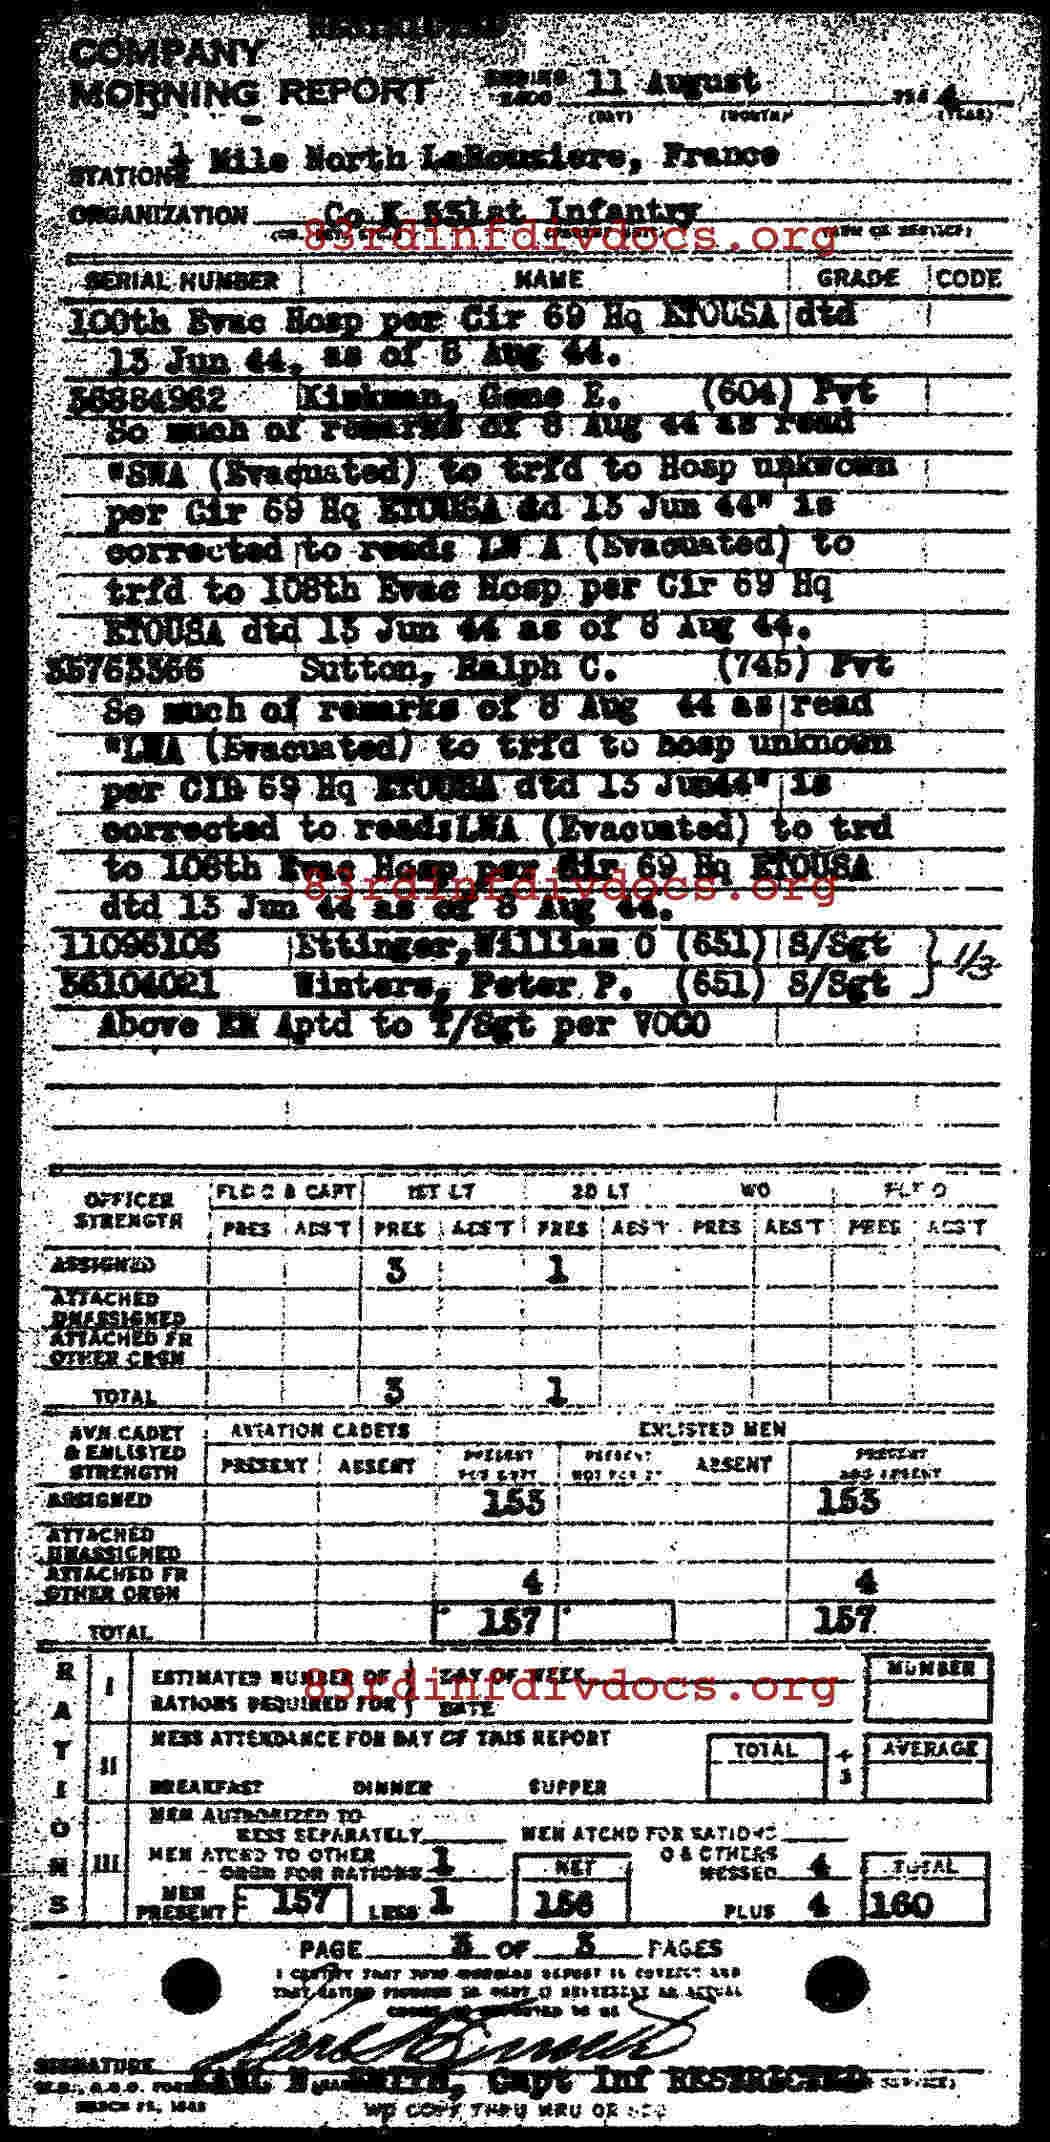 RESTRICTED
COMPANY
MORNING REPORT ENDING 2400 11 August 194 4
(DAY) (MONTH) (YEAR)
STATION 1/4 Mile North LaBouziere, France
ORGANIZATION Co K 331st Infantry
83rdinfdivdocs.org
SERIAL NUMBER NAME GRADE CODE
100th Evac Hosp per Cir 69 Hq ETOUSA dtd
13 Jun 44, as of 8 Aug 44.
36884962 Kinkman, Gene E. (604) Pvt
So much of remarks of 8 Aug 44 as read
"SWA (Evacuated) to trfd to Hosp unkwown
per Cir 69 Hq ETOUSA dd 13 Jun 44" is
corrected to read: LW A (Evacuated) to
trfd to 108th Evac Hosp per Cir 69 Hq
ETOUSA dtd 13 Jun 44 as of 8 Aug 44.
35763366 Sutton, Ralph C. (745) Pvt
So much of remarks of 8 Aug 44 as read
"LWA (Evacuated) to trfd to hosp unknown
per CIR 69 Hq ETOUSA dtd 13 Jun44" is
corrected to read:LWA (Evacuated) to trd
to 108th Evac Hosp per Cir 69 Hq ETOUSA
83rdinfdivdocs.org
dtd 13 Jun 44 as of 8 Aug 44.
11096103 Ettinger,William O (651) S/Sgt
36104021 Winters, Peter P. (651) S/Sgt } 1/3
Above EM Aptd to T/Sgt per VOCO
OFFICER STRENGTH FLD O & CAPT 1ST LT 2D LT WO FLT O
PRES ABS'T PRES ABS'T PRES ABS'T PRES ABS'T PRES ABS'T
ASSIGNED 3 1
ATTACHED UNASSIGNED
ATTACHED FR OTHER ORGN
TOTAL 3 1
AVN. CADET & ENLISTED STRENGTH AVIATION CADETS ENLISTED MEN
PRESENT ABSENT PRESENT FOR DUTY PRESENT NOT FOR DY ABSENT PRESENT AND ABSENT
ASSIGNED 153 153
ATTACHED UNASSIGNED
ATTACHED FR OTHER ORGN 4 4
TOTAL 157 157
RATIONS
I ESTIMATED NUMBER OF RATIONS REQUIRED FOR DAY OF WEEK DATE NUMBER
83rdinfdivdocs.org
II MESS ATTENDANCE FOR DAY OF THIS REPORT TOTAL ÷ 3 AVERAGE
BREAKFAST DINNER SUPPER
III MEN AUTHORIZED TO MESS SEPARATELY MEN ATCHD FOR RATIONS
MEN ATCHD TO OTHER ORGN FOR RATIONS 1 NET O & OTHERS MESSED 4 TOTAL
MEN PRESENT 157 LESS 1 156 PLUS 4 160
PAGE 3 OF 3 PAGES
I CERTIFY THAT THIS MORNING REPORT IS CORRECT AND
SIGNATURE
SMITH, Capt Inf RESTRICTED
WD COPY THRU MRU OR